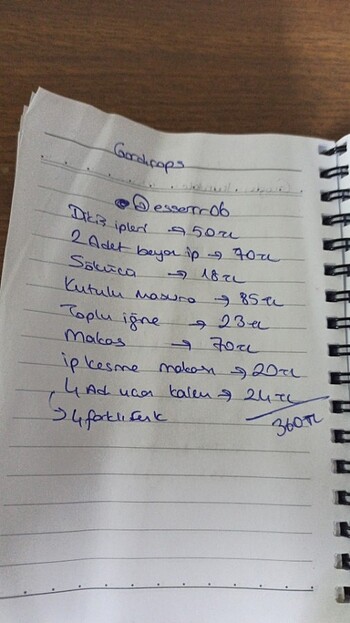 Gardrops
@essemr06
Dikiş ipleri → 50 TL
2 Adet beyaz ip → 70 TL
Sökücü → 18 TL
Kutulu masura → 85 TL
Toplu iğne → 23 TL
Makas → 70 TL
ip kesme makası → 20 TL
4 Ad. ucar kalem → 24 TL
→ 4 farklı renk
360 TL